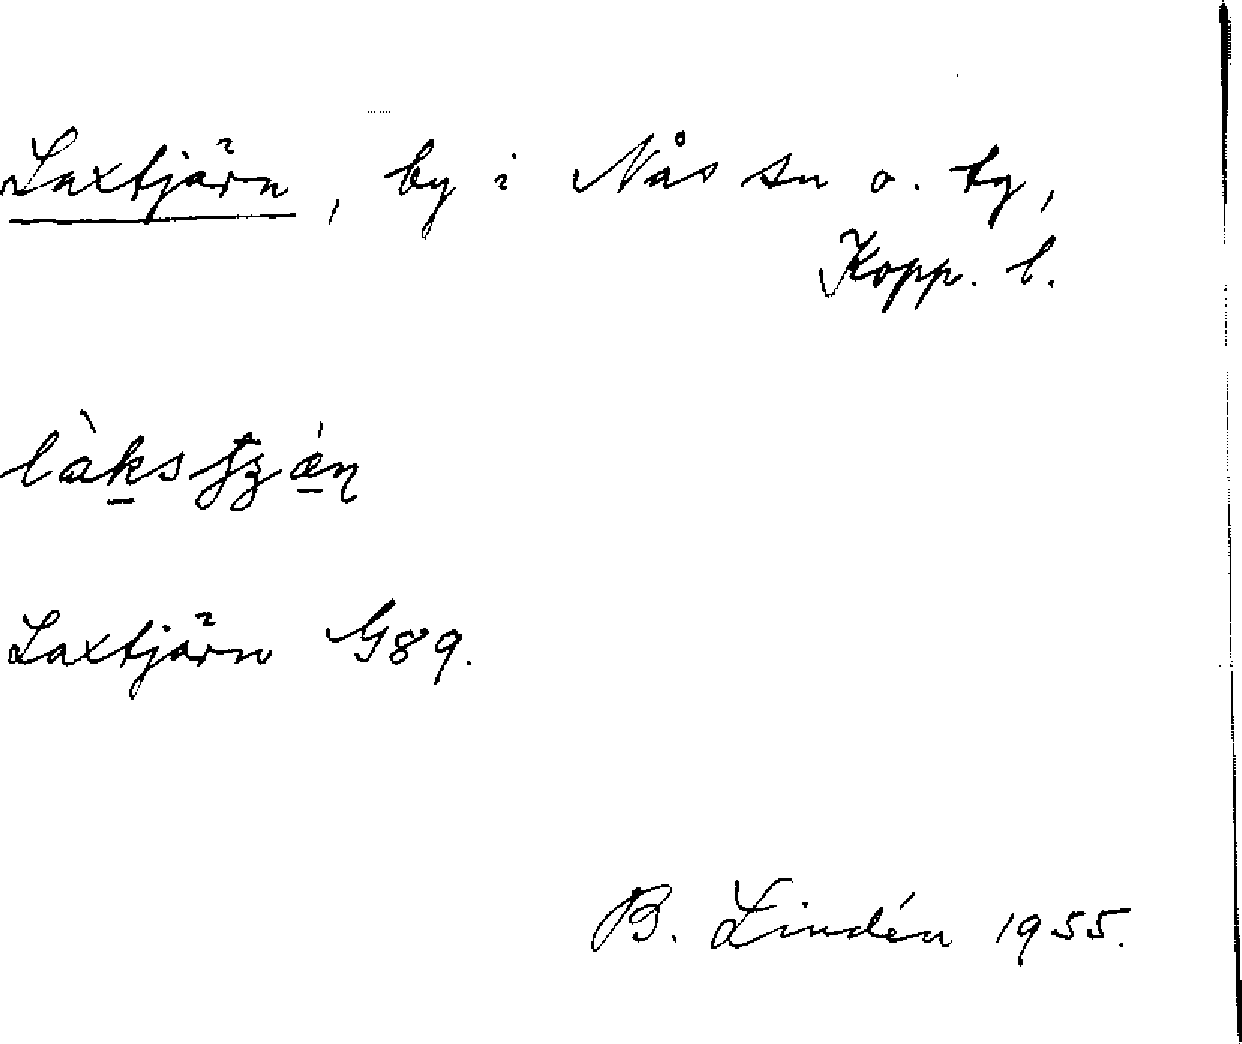 Laxtjärn, by i Nås sn o. tg,
Kopp. l.
Laxtjärn G89.
B. Lindén 1955.